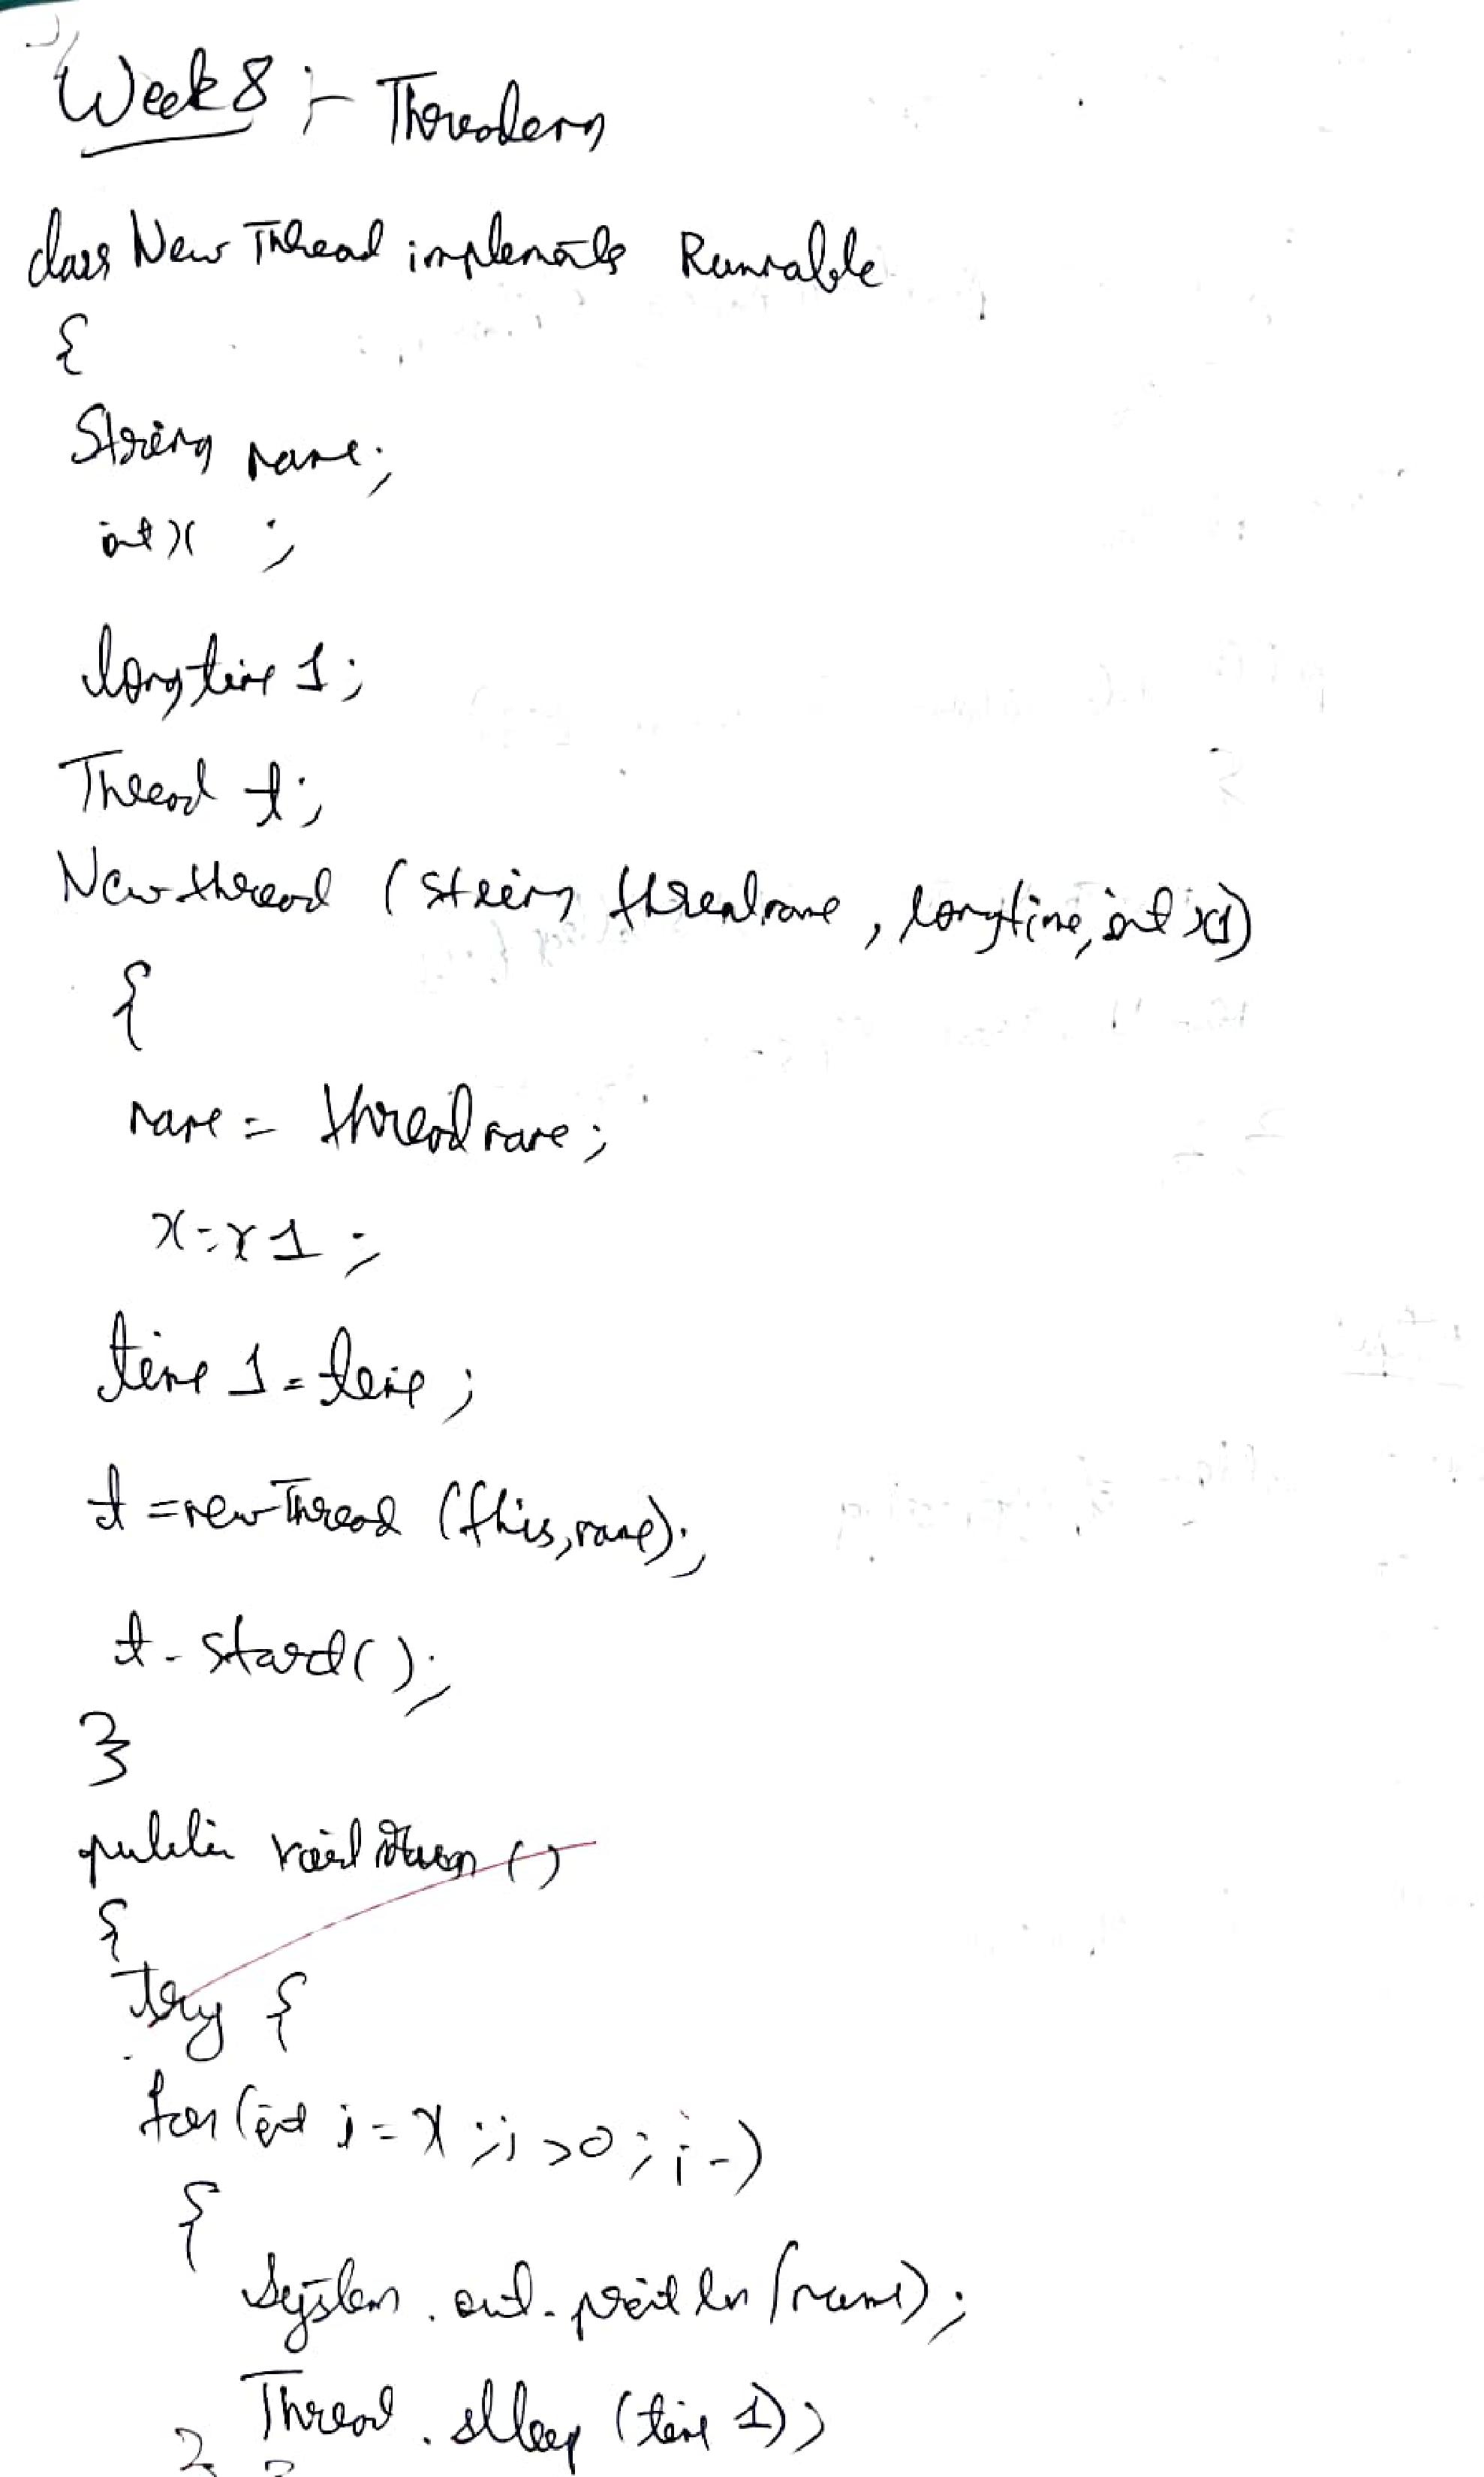 Week 8 :- Threaders
class New Thread implements Runnable
{
String name;
int x ;
long time 1;
Thread t;
New thread (String threadname, long time, int x1)
{
name = threadname;
x = x1 ;
time 1 = time ;
t = new Thread (this, name);
t. start();
}
public void run ()
{
try {
for (int i = x ; i > 0 ; i -)
{
System . out . print ln (name) ;
Thread . sleep (time 1) ;
} }